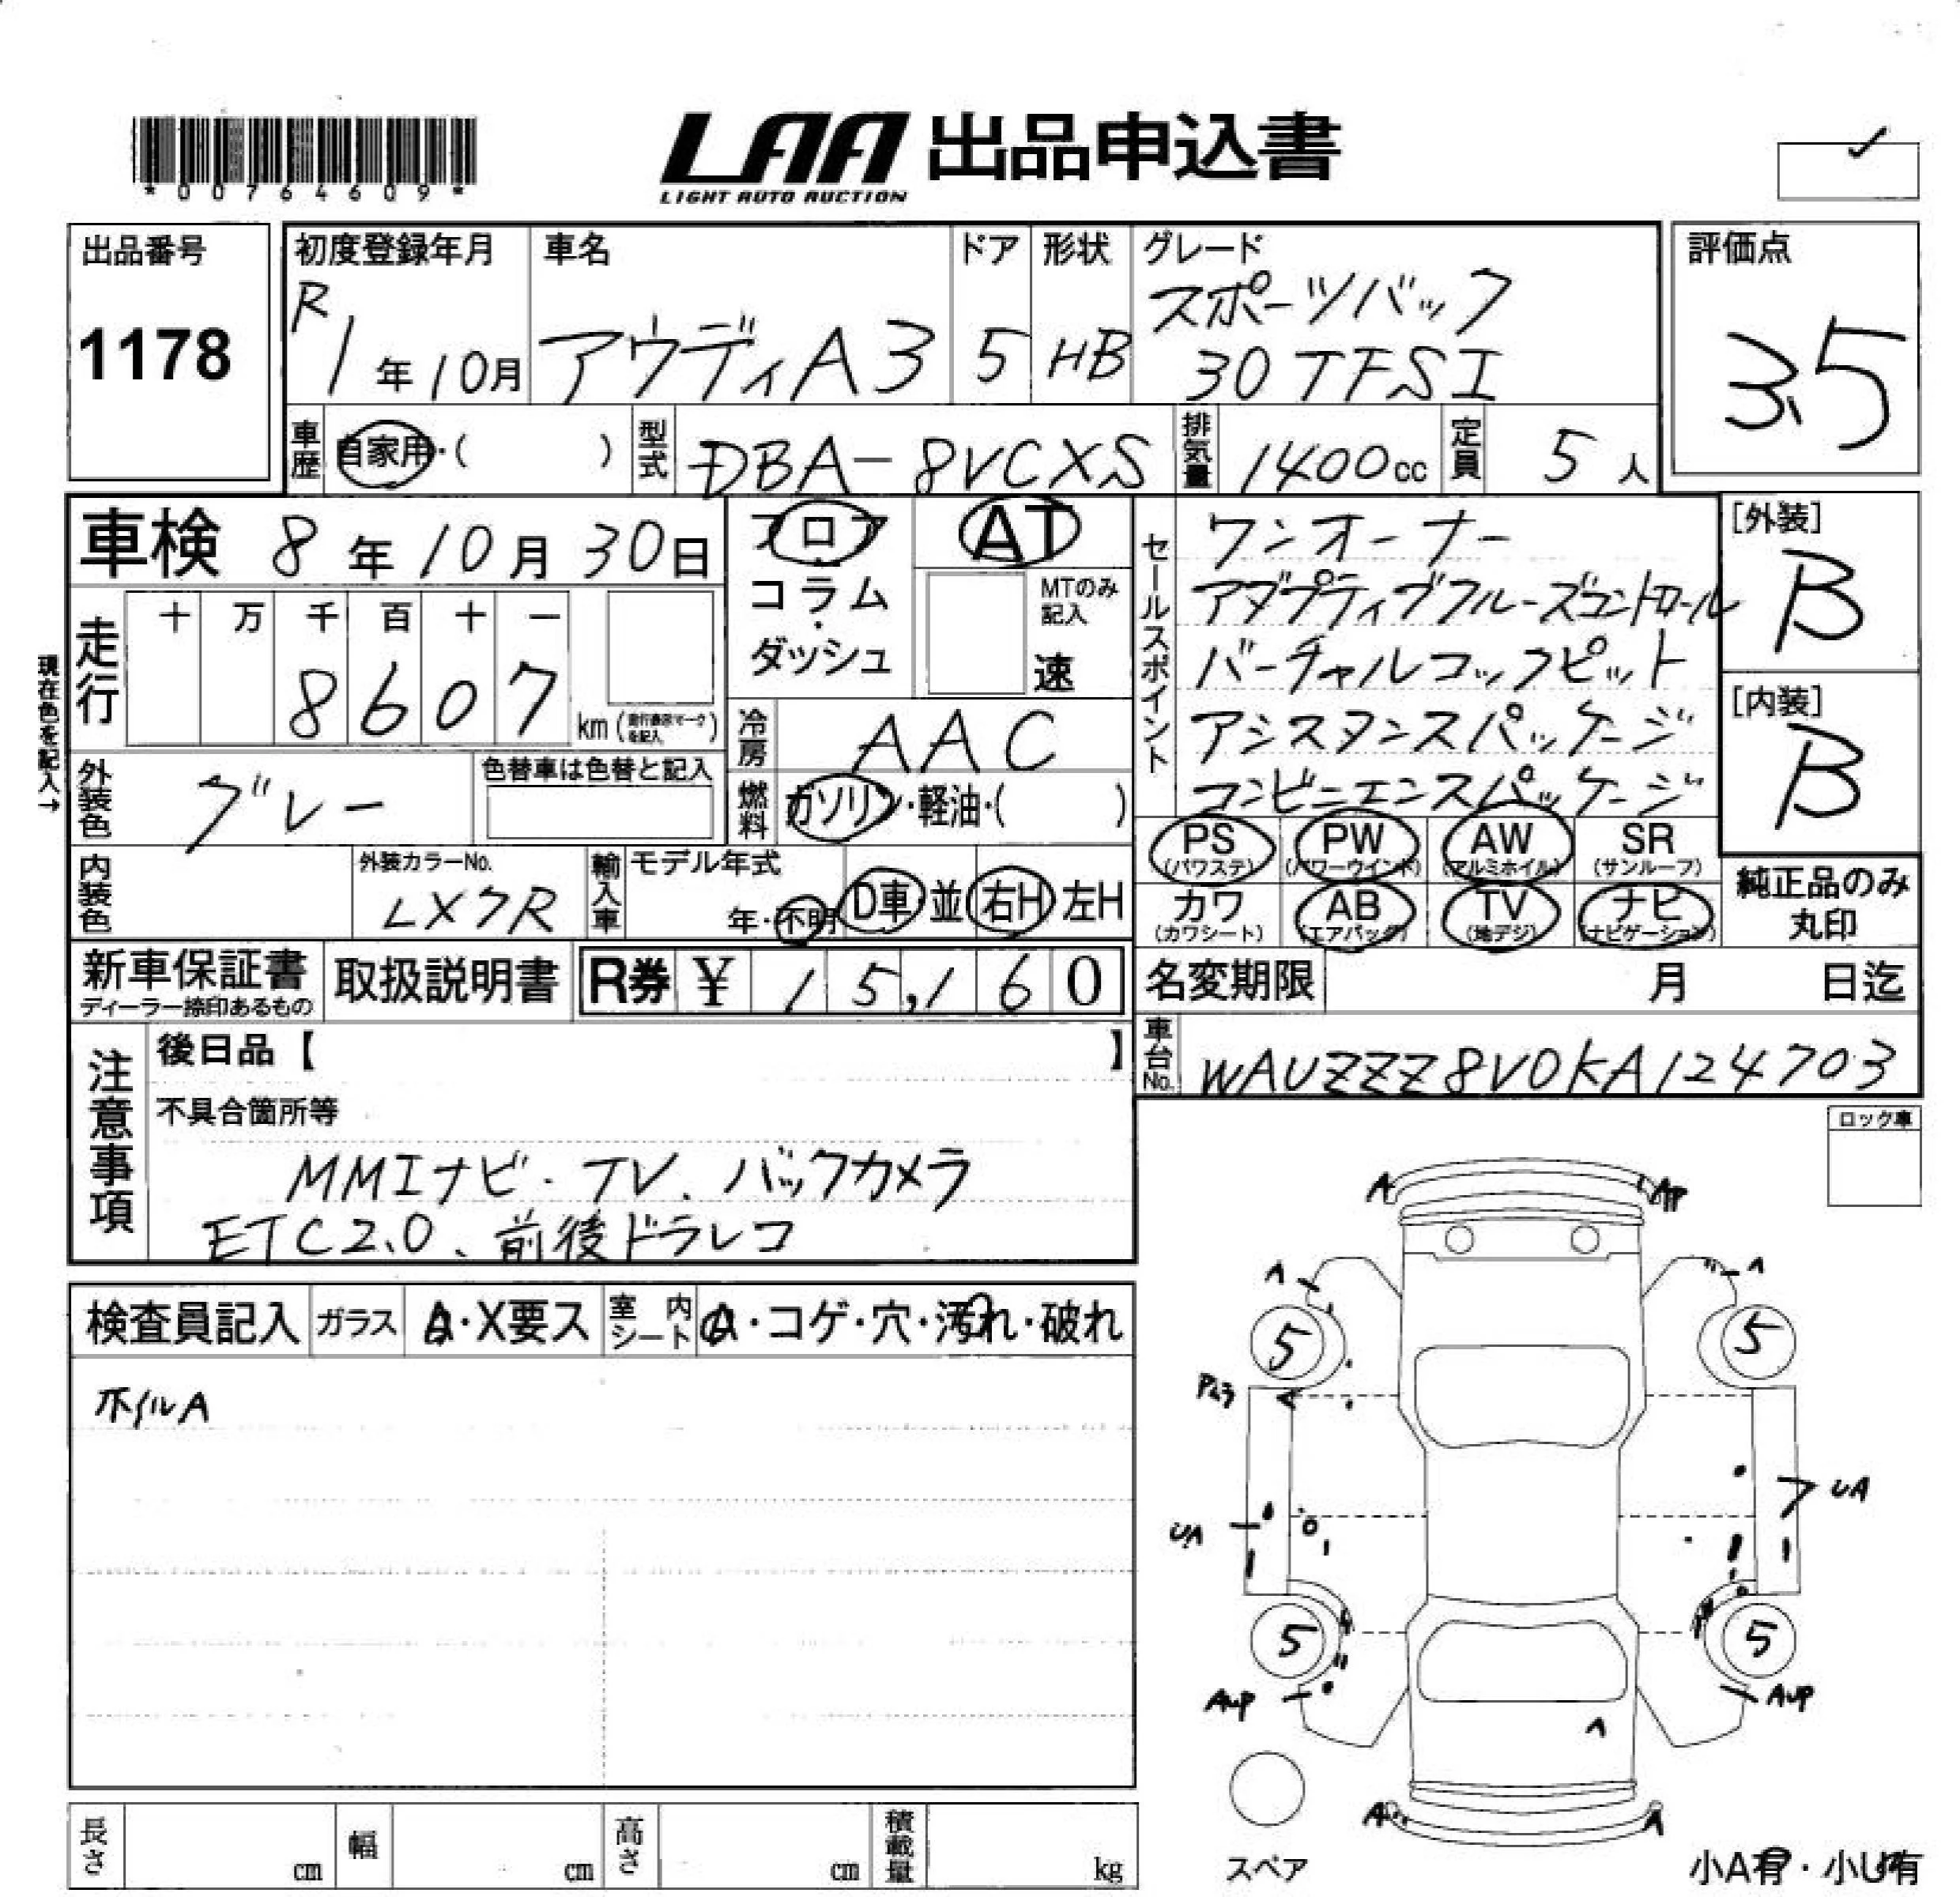 *00764609*
LAA 出品申込書
LIGHT AUTO AUCTION
出品番号
1178
初度登録年月
R1年10月
車名
アウディA3
ドア
5
形状
HB
グレード
スポーツバック
30 TFSI
評価点
3.5
車歴
自家用・( )
型式
DBA-8VCXS
排気量
1400cc
定員
5人
車検 8年10月30日
フロア
コラム
・
ダッシュ
AT
MTのみ
記入
速
セールスポイント
ワンオーナー
アダプティブクルーズコントロール
バーチャルコックピット
アシスタンスパッケージ
コンビニエンスパッケージ
[外装]
B
[内装]
B
現在色を記入→
走行
十 万 千 百 十 一
8 6 0 7
km(走行表示マークを記入)
冷房
AAC
外装色
グレー
色替車は色替と記入
燃料
ガソリン・軽油・( )
PS
(パワステ)
PW
(パワーウインド)
AW
(アルミホイル)
SR
(サンルーフ)
カワ
(カワシート)
AB
(エアバッグ)
TV
(地デジ)
ナビ
(ナビゲーション)
純正品のみ
丸印
内装色
外装カラーNo.
LX7R
輸入車
モデル年式
年・不明
D車・並
右H・左H
新車保証書
ディーラー捺印あるもの
取扱説明書
R券 ¥ 15,160
名変期限 月 日迄
車台No.
WAUZZZ8V0KA124703
注意事項
後日品【 】
不具合箇所等
MMIナビ・TV、バックカメラ
ETC2.0、前後ドラレコ
ロック車
検査員記入
ガラス
A・X要ス
室内
シート
A・コゲ・穴・汚れ・破れ
ホイルA
A
AP
A
A
5
5
Pムラ
UA
UA
5
5
AUP
AUP
A
A
A
スペア
小A有・小U有
長さ cm
幅 cm
高さ cm
積載量 kg